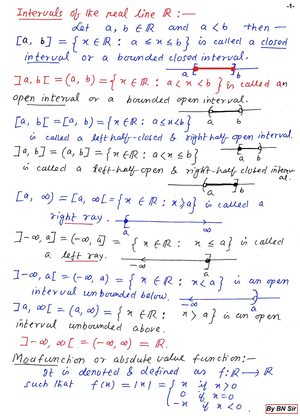 -1-
Intervals of the real line ℝ :—
Let a, b ∈ ℝ and a < b then —
[a, b] = {x ∈ ℝ : a ≤ x ≤ b} is called a closed
interval or a bounded closed interval.
a b
]a, b[ = (a, b) = {x ∈ ℝ : a < x < b} is called an
open interval or a bounded open interval.
a b
[a, b[ = [a, b) = {x ∈ ℝ : a ≤ x < b}
is called a left half-closed & right half open interval.
]a, b] = (a, b] = {x ∈ ℝ : a < x ≤ b}
a b
is called a left-half open & right-half closed interval.
a b
[a, ∞) = [a, ∞[ = {x ∈ ℝ : x ≥ a} is called a
right ray.
a ∞
]-∞, a] = (-∞, a] = {x ∈ ℝ : x ≤ a} is called
a left ray.
-∞ a
]-∞, a[ = (-∞, a) = {x ∈ ℝ : x < a} is an open
interval unbounded below.
-∞ a
]a, ∞[ = (a, ∞) = {x ∈ ℝ : x > a} is an open
interval unbounded above.
]-∞, ∞[ = (-∞, ∞) = ℝ.
Mod function or absolute value function :—
It is denoted & defined as f: ℝ → ℝ
such that f(x) = |x| = { x if x > 0
0 if x = 0
-x if x < 0 .
By BN Sir